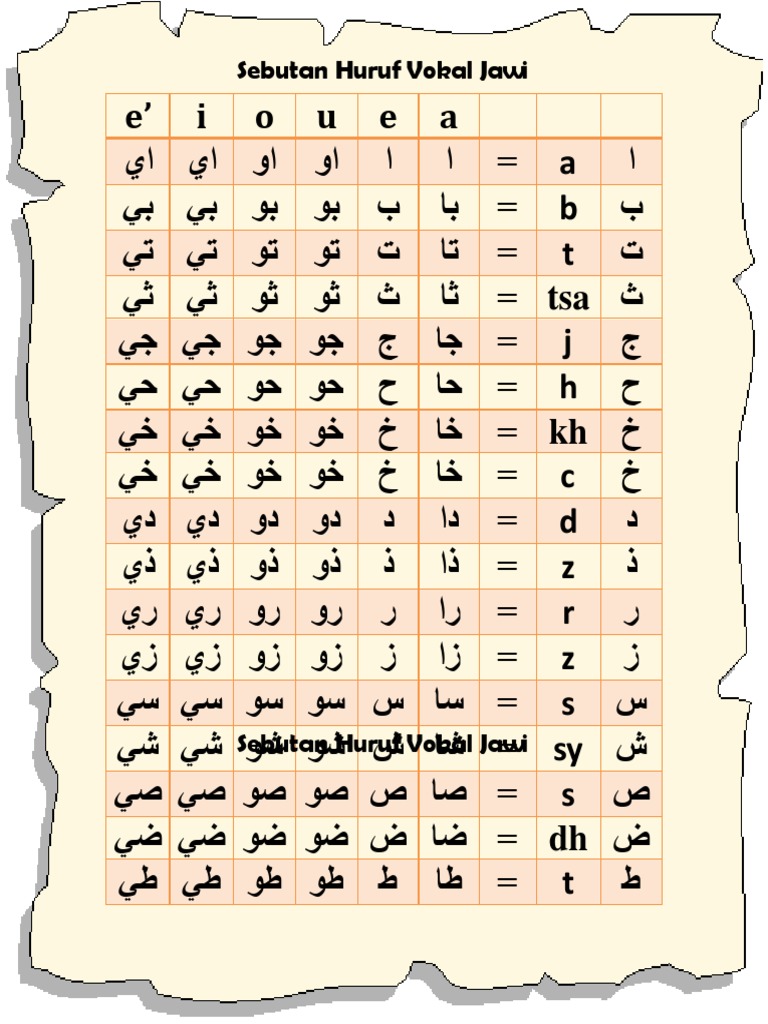 Sebutan Huruf Vokal Jawi
a e u o i e’
ا a = ا ا او او اي اي
ب b = با ب بو بو بي بي
ت t = تا ت تو تو تي تي
ث tsa = ثا ث ثو ثو ثي ثي
ج j = جا ج جو جو جي جي
ح h = حا ح حو حو حي حي
خ kh = خا خ خو خو خي خي
خ c = خا خ خو خو خي خي
د d = دا د دو دو دي دي
ذ z = ذا ذ ذو ذو ذي ذي
ر r = را ر رو رو ري ري
ز z = زا ز زو زو زي زي
س s = سا س سو سو سي سي
ش sy = شا ش شو شو شي شي
Sebutan Huruf Vokal Jawi
ص s = صا ص صو صو صي صي
ض dh = ضا ض ضو ضو ضي ضي
ط t = طا ط طو طو طي طي